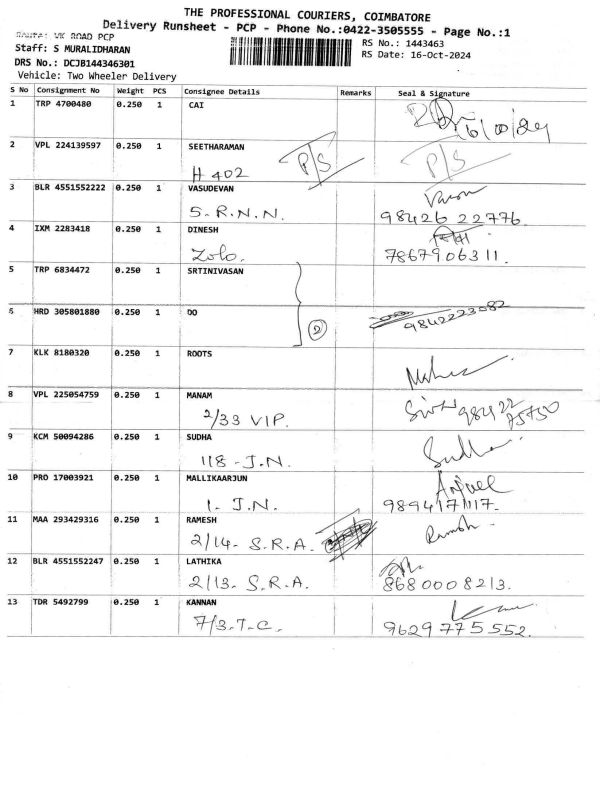 THE PROFESSIONAL COURIERS, COIMBATORE
Delivery Runsheet - PCP - Phone No.:0422-3505555 - Page No.:1
Route: VK ROAD PCP
RS No.: 1443463
Staff: S MURALIDHARAN
RS Date: 16-Oct-2024
DRS No.: DCJB144346301
Vehicle: Two Wheeler Delivery
S No Consignment No Weight PCS Consignee Details Remarks Seal & Signature
1 TRP 4700480 0.250 1 CAI
16/10/24
2 VPL 224139597 0.250 1 SEETHARAMAN
H 402 P/S P/S
3 BLR 4551552222 0.250 1 VASUDEVAN
S.R.N.N. 98426 22776.
4 IXM 2283418 0.250 1 DINESH
Zolo. 7867906311.
5 TRP 6834472 0.250 1 SRTINIVASAN
6 HRD 305801880 0.250 1 DO 9842223082
2
7 KLK 8180320 0.250 1 ROOTS
8 VPL 225054759 0.250 1 MANAM
2/33 VIP. 98422 75750
9 KCM 50094286 0.250 1 SUDHA
118-J.N. Sudha
10 PRO 17003921 0.250 1 MALLIKAARJUN
1-J.N. 9894171117.
11 MAA 293429316 0.250 1 RAMESH Ramesh.
2/14-S.R.A.
12 BLR 4551552247 0.250 1 LATHIKA
2/13-S.R.A. 8680008213.
13 TDR 5492799 0.250 1 KANNAN
7/3.T.C. 9629775552.